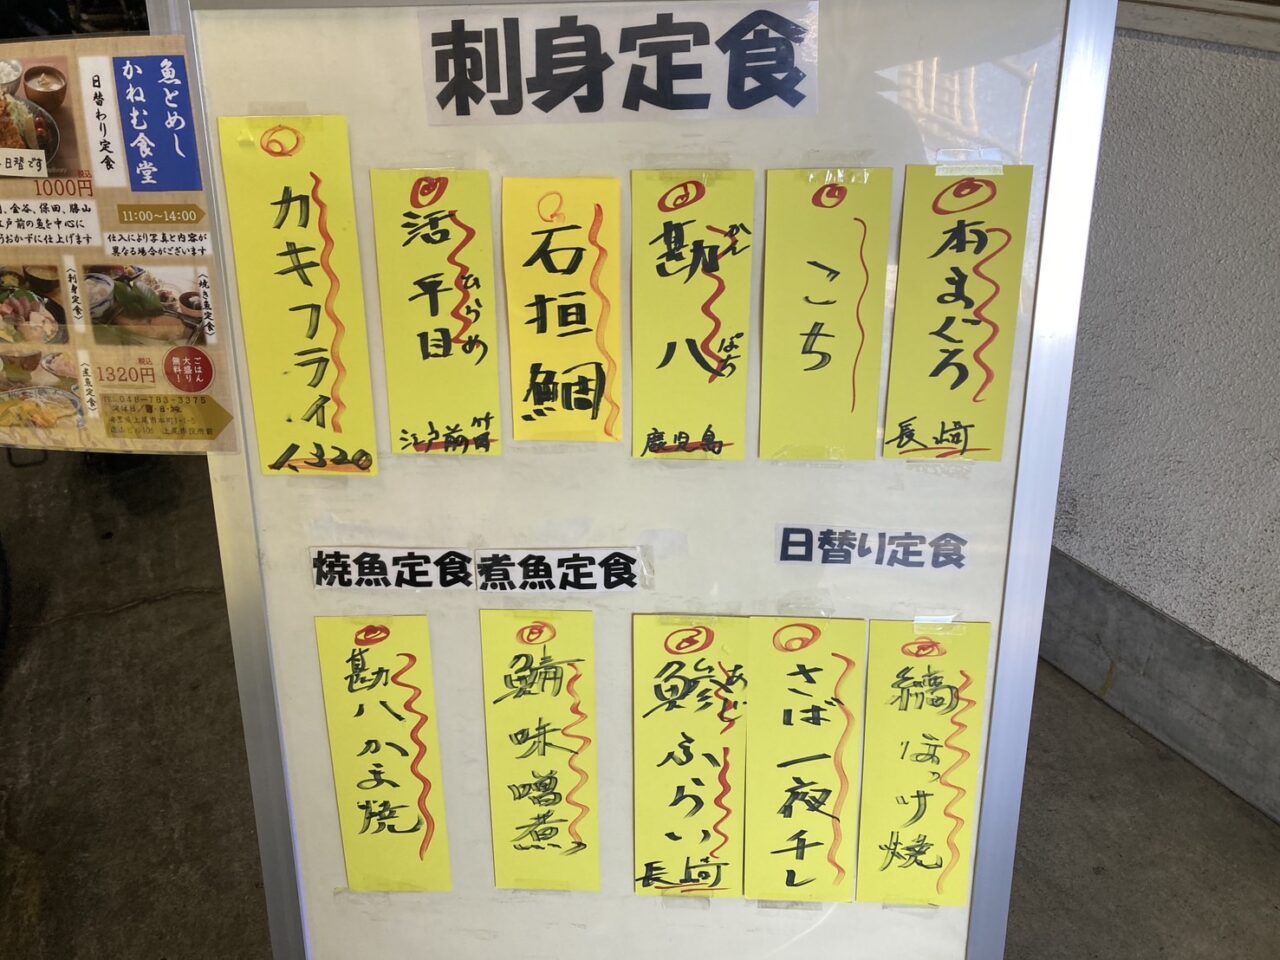 刺身定食
本まぐろ
長崎
こち
勘八
かんぱち
鹿児島
石垣鯛
活平目
ひらめ
江戸前
カキフライ
1,320
焼魚定食
煮魚定食
日替り定食
勘八かま焼
鯖味噌煮
鯵ふらい
あじ
長崎
さば一夜干し
縞ほっけ焼
魚とめし
かねむ食堂
日替わり定食
日替です
税込
1000円
11:00〜14:00
、金谷、保田、勝山
江戸前の魚を中心に
おかずに仕上げます
仕入により写真と内容が
異なる場合がございます
〈刺身定食〉
〈焼き魚定食〉
〈煮魚定食〉
税込
1320円
ごはん
大盛り
無料!
TEL 048-783-3375
上尾市役所前